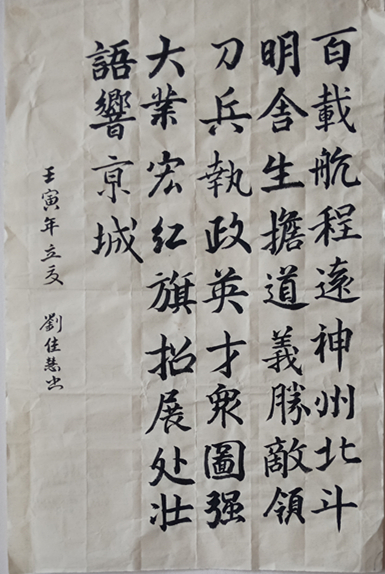 百載航程遠神州北斗
明舍生擔道義勝敵領
刀兵執政英才衆圖强
大業宏红旗招展处壮
語響京城
壬寅年立夏 劉佳慧书